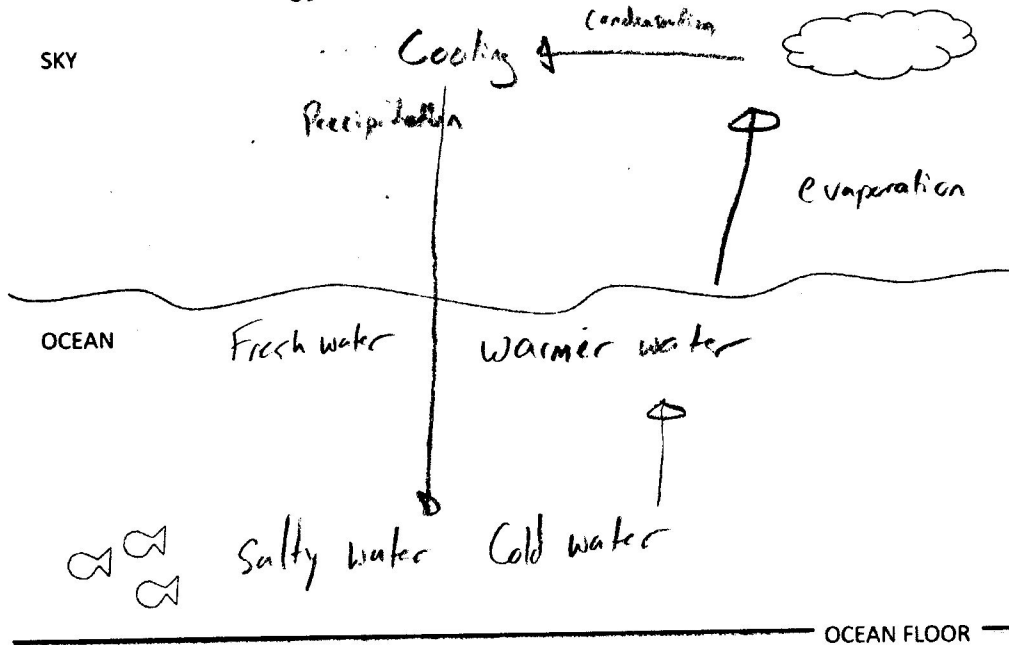 Condensation
SKY
Cooling
Precipitation
evaporation
OCEAN
Fresh water
warmer water
Salty water
Cold water
OCEAN FLOOR